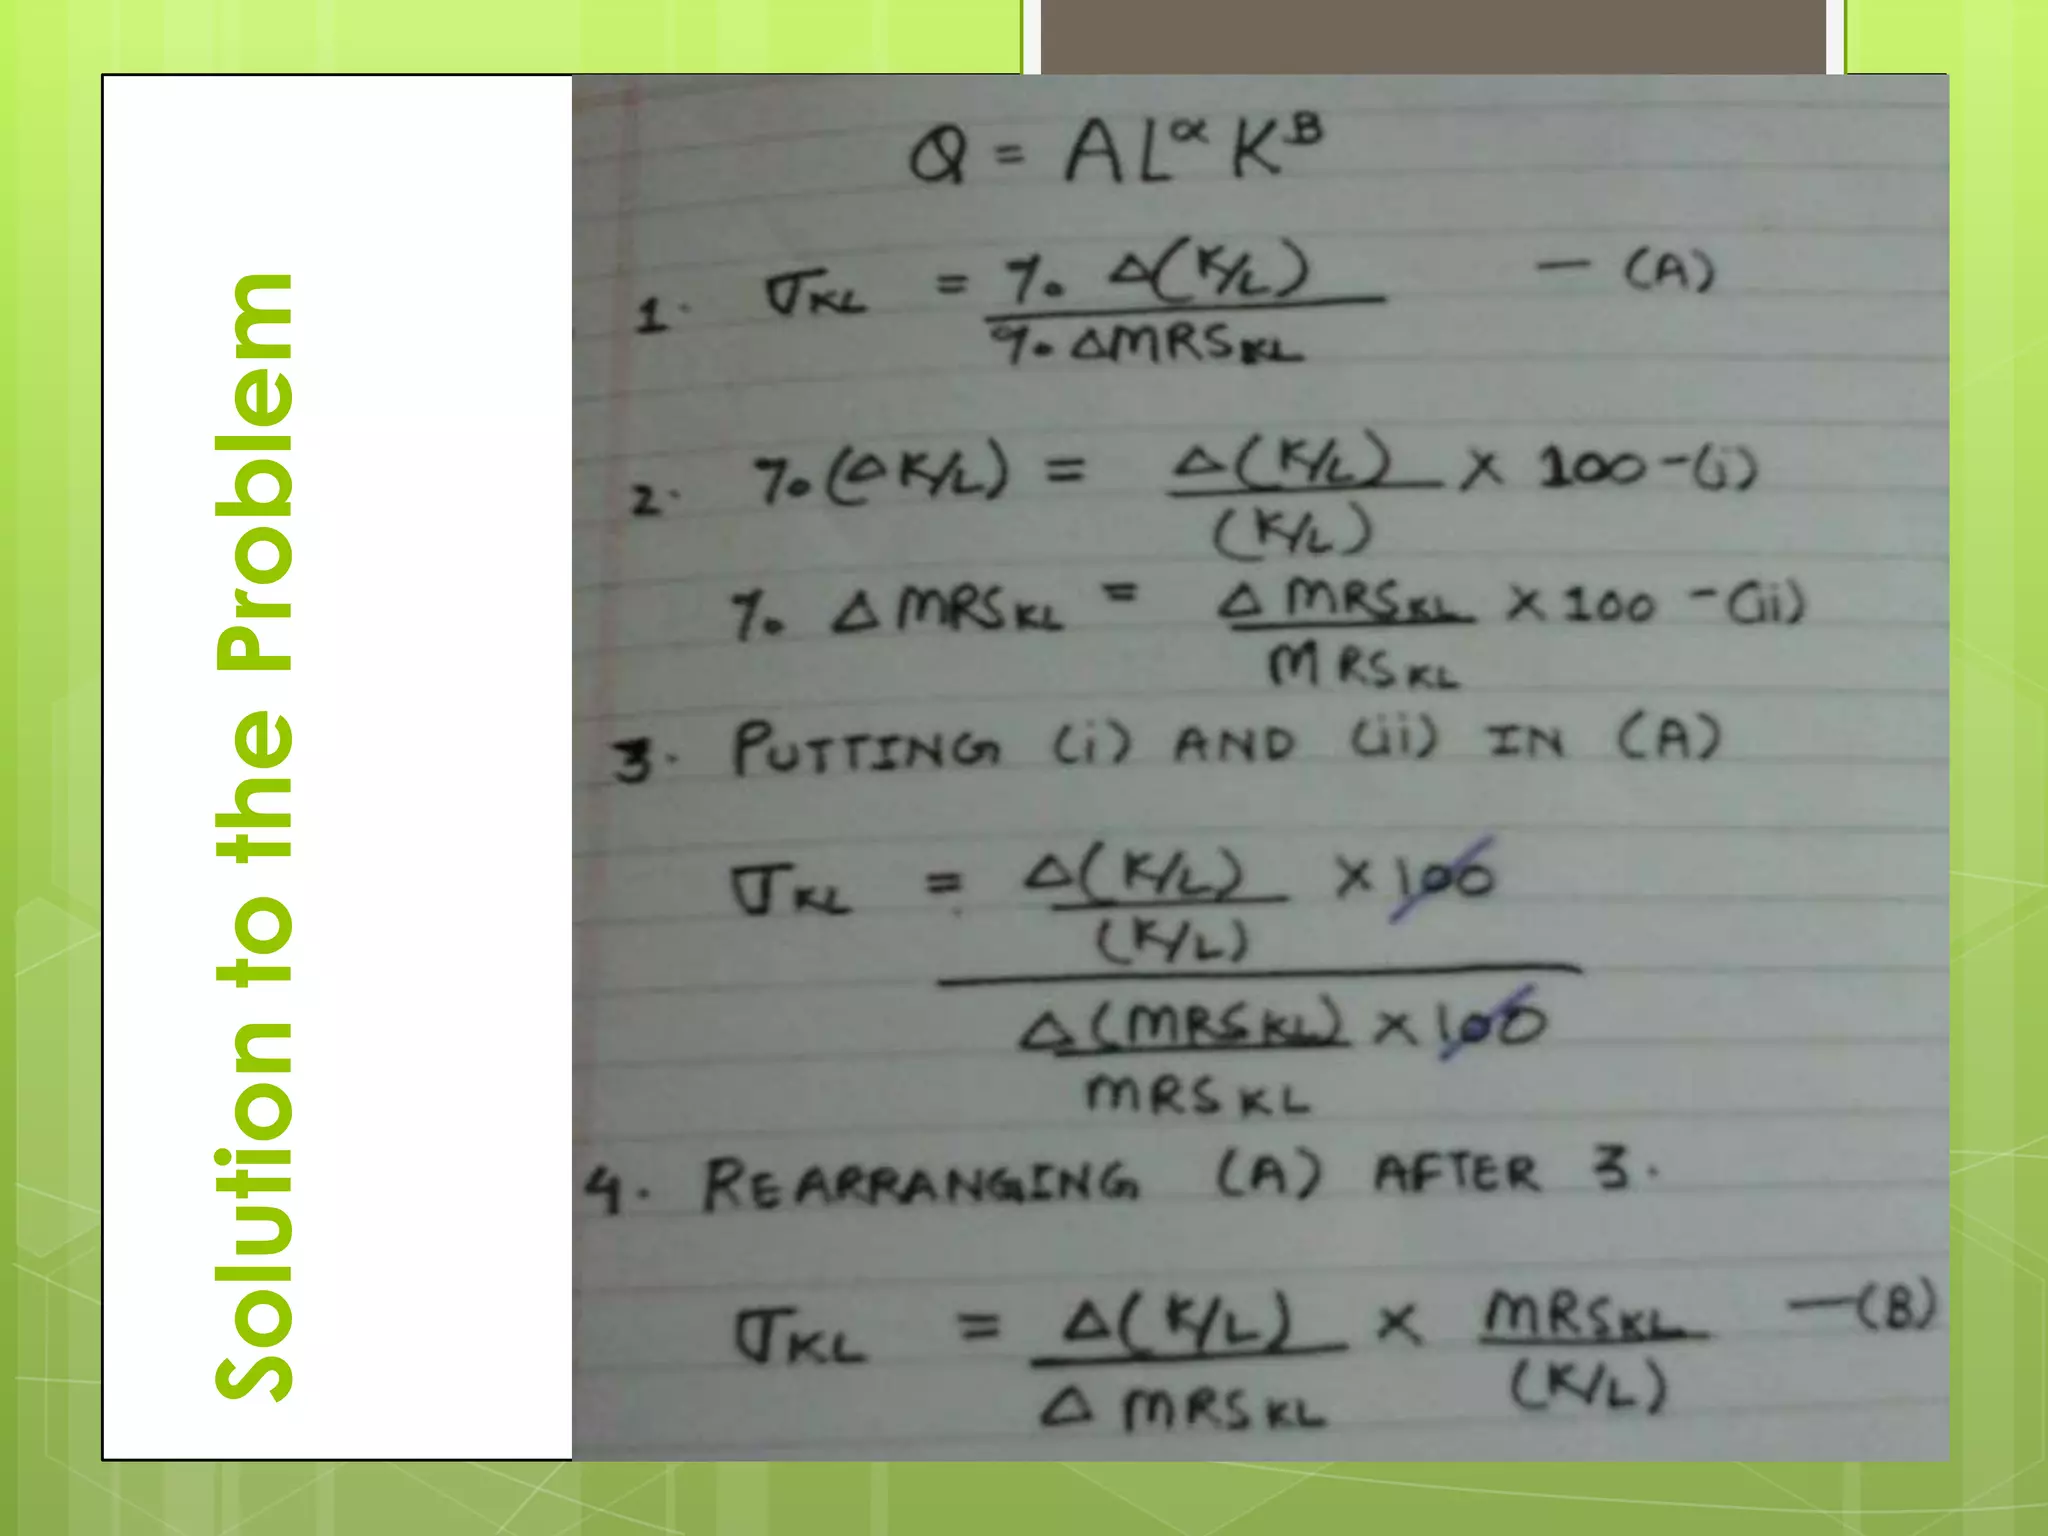 Solution to the Problem
Q = A L^α K^B
1. σKL = % Δ(K/L) / % ΔMRSKL — (A)
2. %(ΔK/L) = Δ(K/L) / (K/L) × 100 - (i)
% ΔMRSKL = ΔMRSKL / MRSKL × 100 - (ii)
3. PUTTING (i) AND (ii) IN (A)
σKL = Δ(K/L) / (K/L) × 100
Δ(MRSKL) / MRSKL × 100
4. REARRANGING (A) AFTER 3.
σKL = Δ(K/L) / ΔMRSKL × MRSKL / (K/L) — (B)